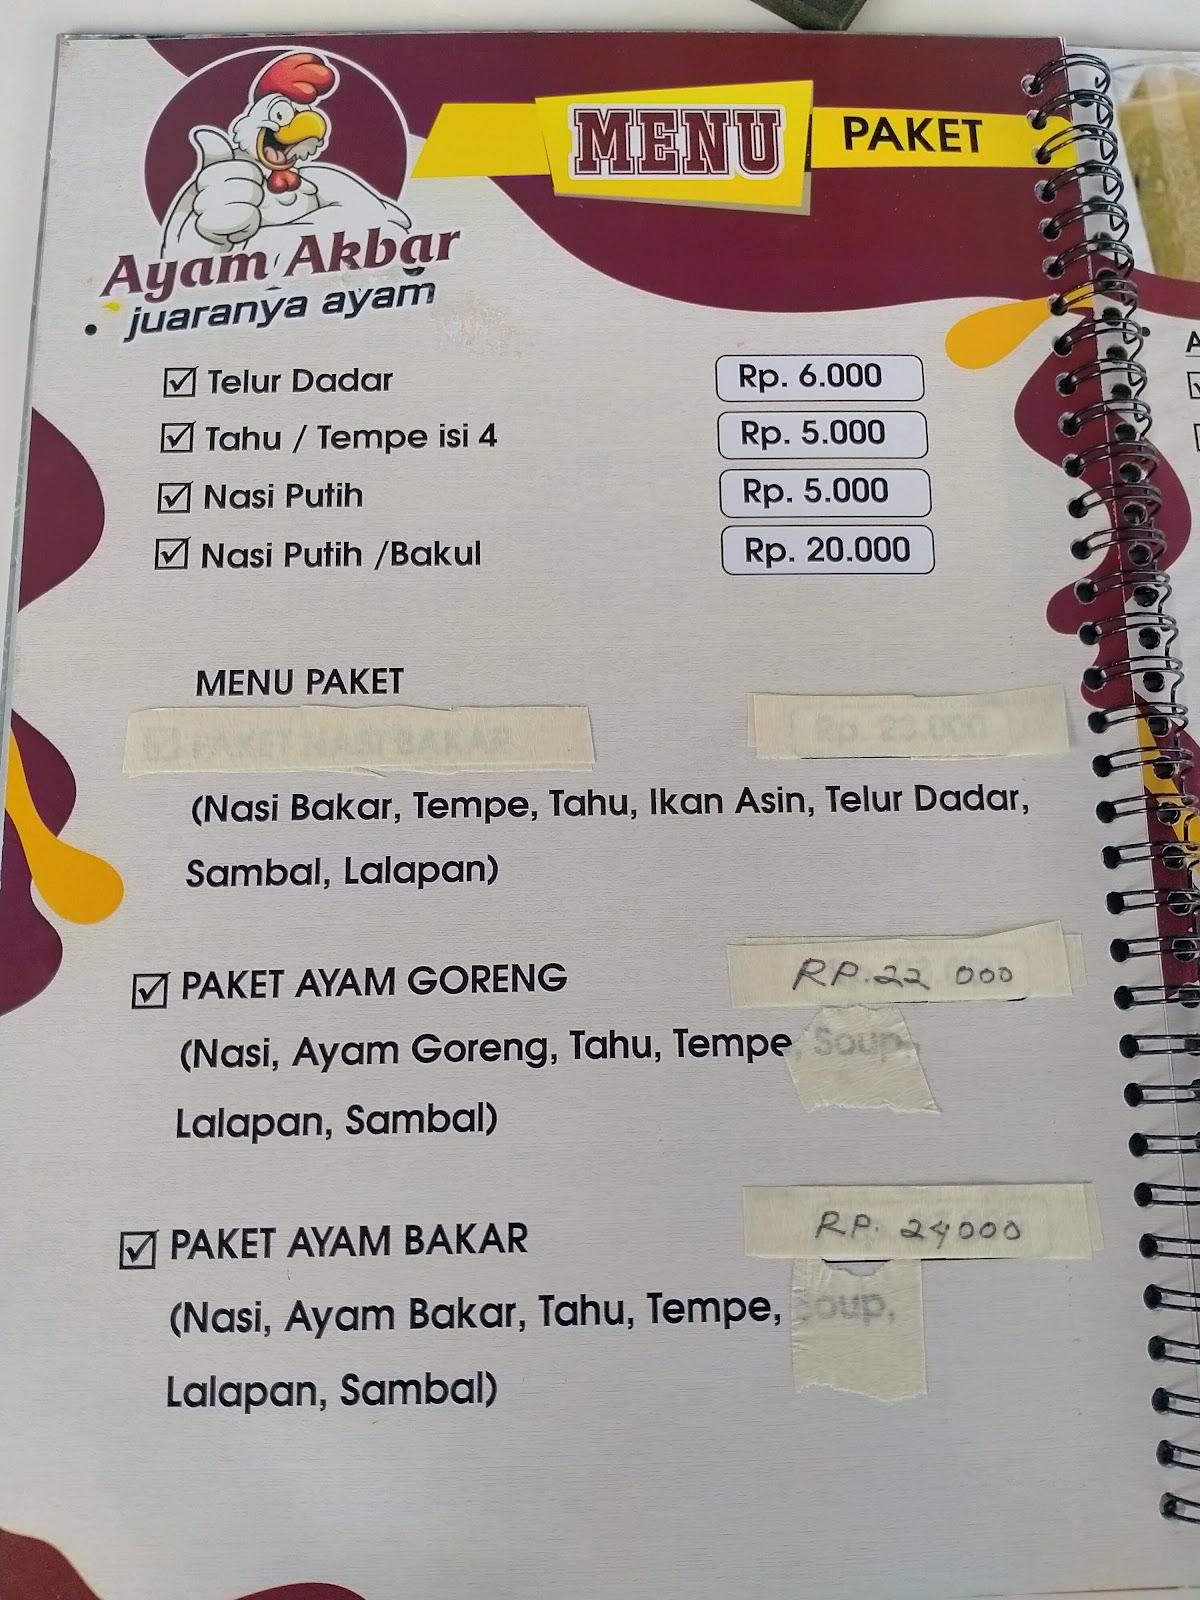 MENU PAKET
Ayam Akbar
juaranya ayam
Telur Dadar Rp. 6.000
Tahu / Tempe isi 4 Rp. 5.000
Nasi Putih Rp. 5.000
Nasi Putih /Bakul Rp. 20.000
MENU PAKET
PAKET NASI BAKAR Rp. 23.000
(Nasi Bakar, Tempe, Tahu, Ikan Asin, Telur Dadar,
Sambal, Lalapan)
PAKET AYAM GORENG RP. 22 000
(Nasi, Ayam Goreng, Tahu, Tempe, Soup,
Lalapan, Sambal)
PAKET AYAM BAKAR RP. 24000
(Nasi, Ayam Bakar, Tahu, Tempe, Soup,
Lalapan, Sambal)